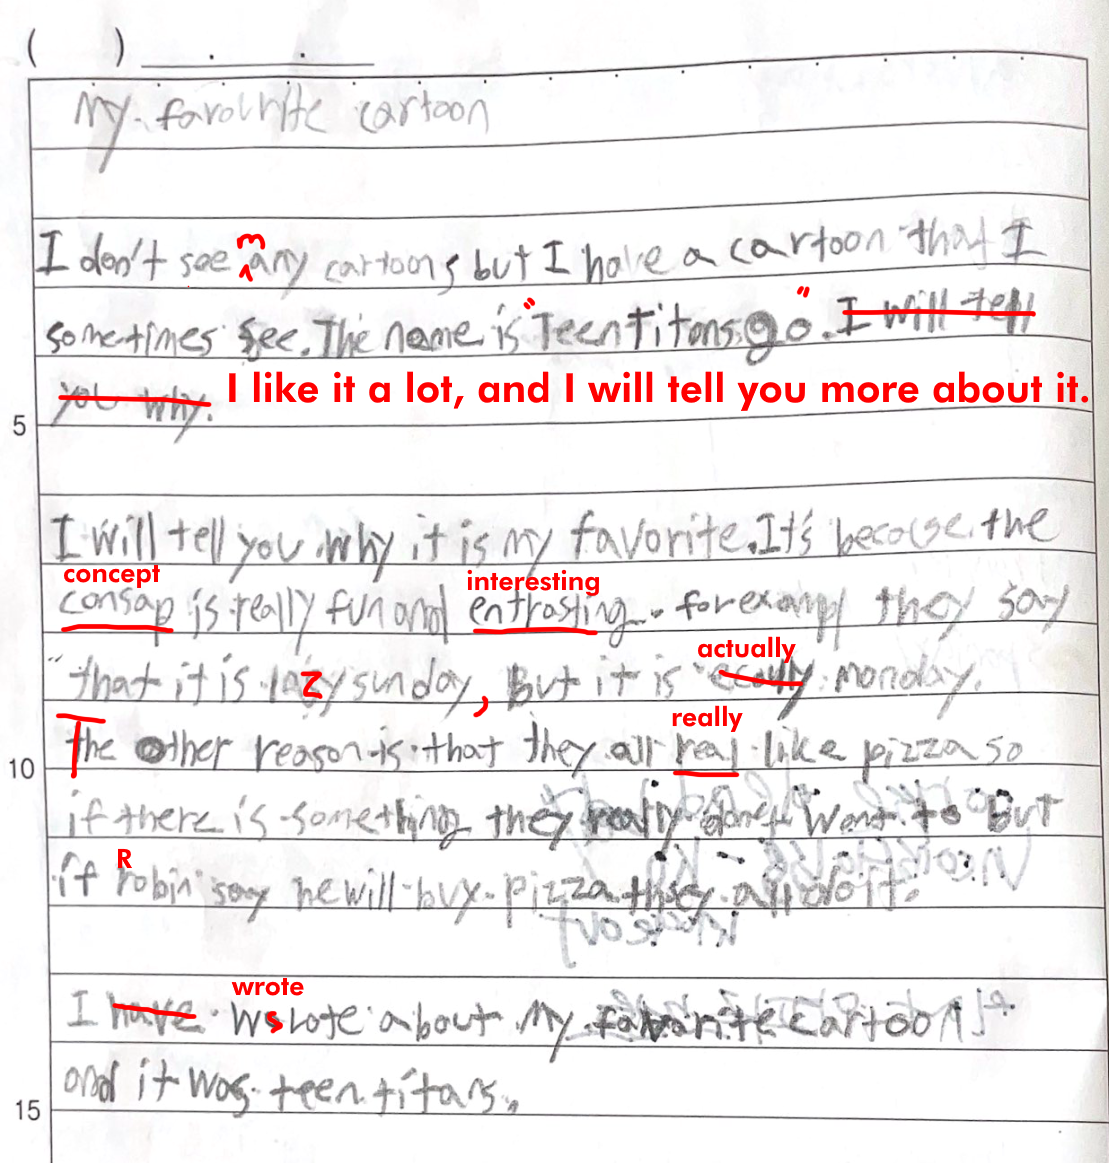 ( ) . .
My favourite cartoon
I don't see many cartoons but I have a cartoon that I
sometimes see. The name is "Teen Titans go". I will tell
you why. I like it a lot, and I will tell you more about it.
5
I will tell you why it is my favorite. It's becouse the
concept interesting
consap is really fun and entrasting. for exampl they say
actually
"that it is lazy sunday, But it is monday.
really
The other reason is that they all real like pizza so
10
if there is something they really don't want to But
R
if robin say he will buy pizza they all do it.
wrote
I have wsrote about my favarite cartoon
and it was teen titans.
15